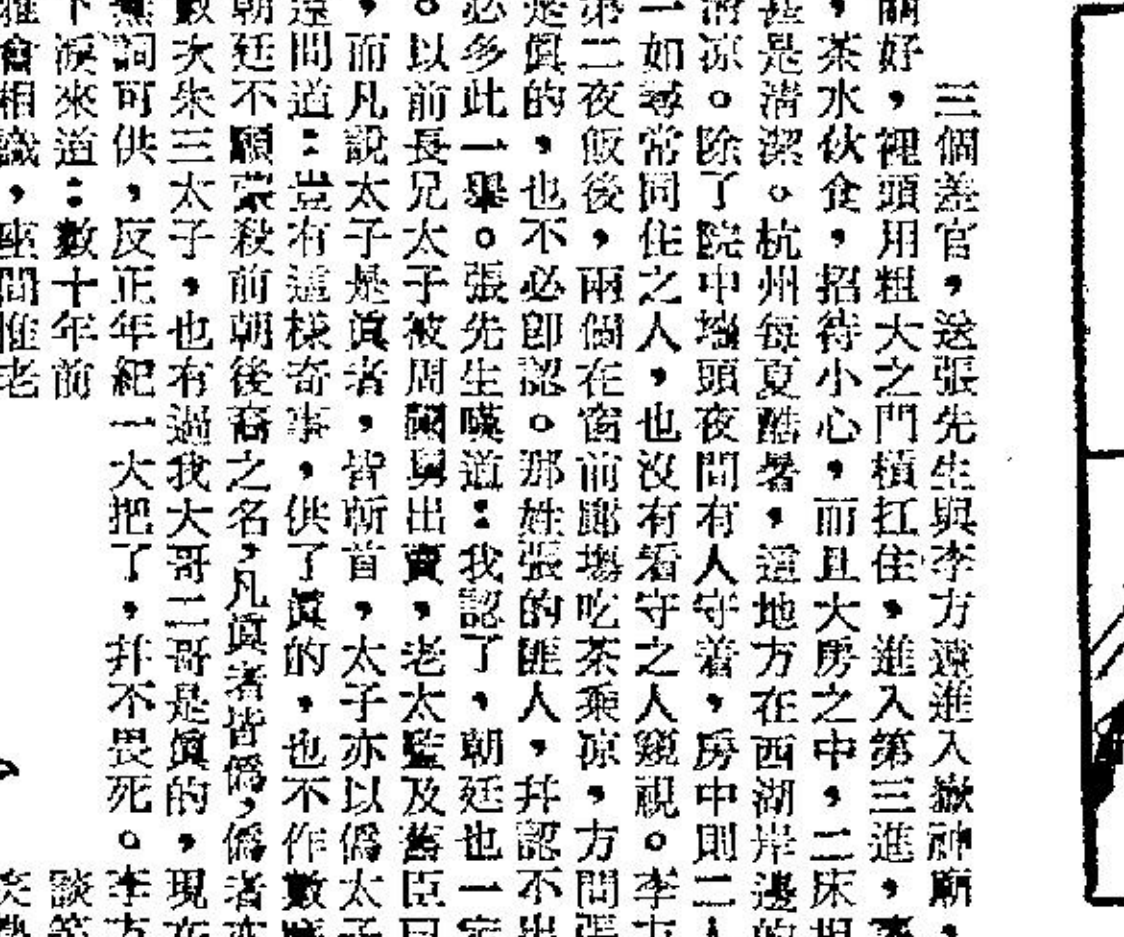 三個差官，送張先生與李方遠進入嶽神廟，
好，裡頭用粗大之門槓扛住，進入第三進，
，茶水伙食，招待小心，而且大房之中，二床
甚是清潔。杭州每夏酷暑，這地方在西湖岸邊的
清凉。除了院中墻頭夜間有人守着，房中則二人
一如尋常同住之人，也沒有看守之人窺視。李方
第二夜飯後，兩個在窗前廊塲吃茶乘凉，方問張
是眞的，也不必卽認。那姓張的匪人，幷認不出
必多此一舉。張先生嘆道：我認了，朝廷也一定
。以前長兄太子被周國舅出賣，老太監及舊臣曰
，而凡說太子是眞者，皆斬首，太子亦以僞太子
遠問道：豈有這樣奇事，供了眞的，也不作數
朝廷不願蒙殺前朝後裔之名，凡眞者皆僞，僞者亦
數次朱三太子，也有過我大哥二哥是眞的，現在
無詞可供，反正年紀一大把了，幷不畏死。李方
下淚來道：數十年前
會相識，座間惟老
談